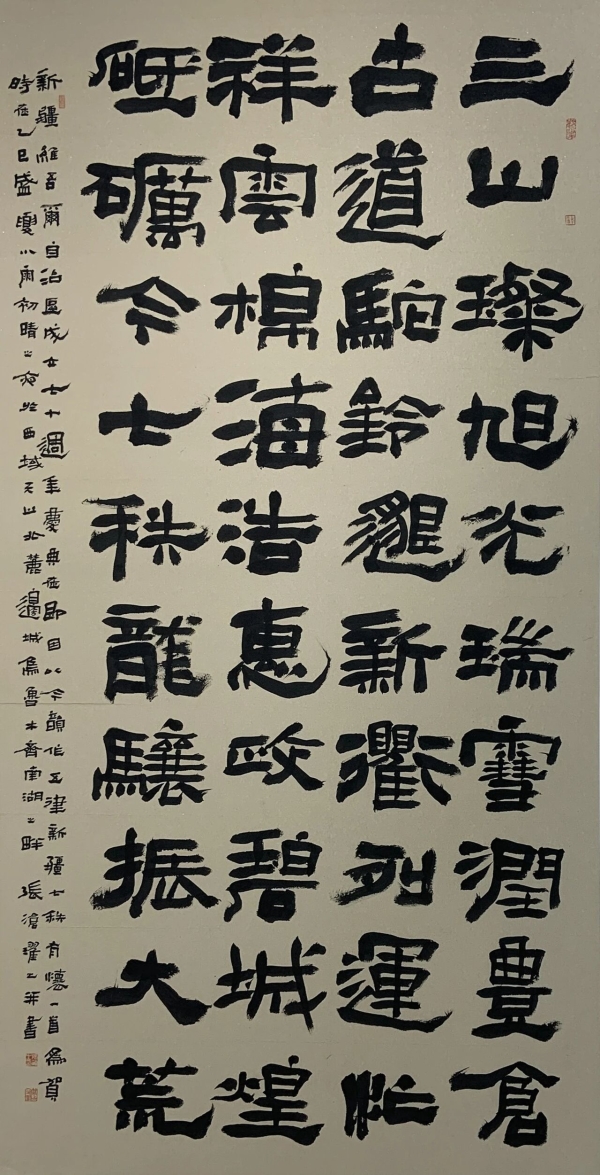 三山璨旭光瑞雪潤豊倉
古道駝鈴邈新衢列運忙
祥雲棉海浩惠政碧城煌
砥礪今七秩龍驤振大荒
新疆維吾爾自治區成立七十週年慶典在即以今韻作五律新疆七秩有懷一首為賀
時在乙巳盛夏小雨初晴之夜於西域天山北麓邊城烏魯木齊南湖之畔 張滄并書